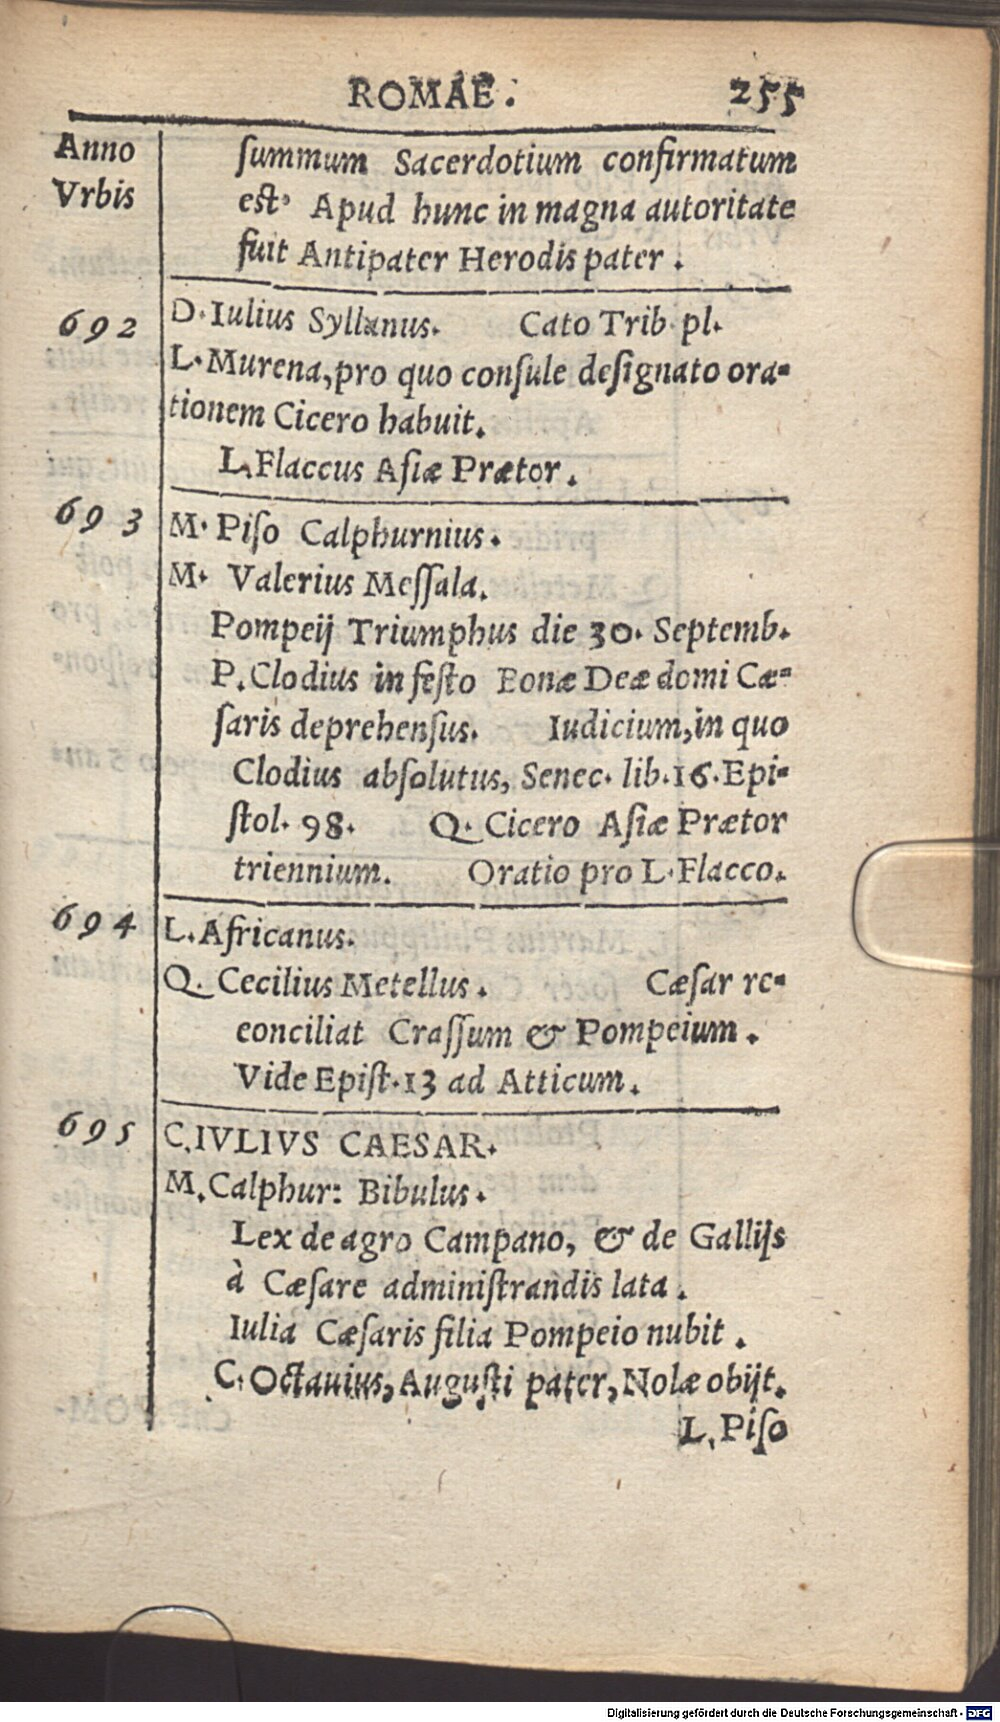 ROMAE. 255
Anno
Vrbis
ſummum Sacerdotium confirmatum
est· Apud hunc in magna autoritate
fuit Antipater Herodis pater.
692 D. Iulius Syllanus. Cato Trib. pl.
L. Murena, pro quo conſule deſignato ora-
tionem Cicero habuit.
L. Flaccus Aſiæ Prætor.
693 M. Piſo Calphurnius.
M. Valerius Meſſala.
Pompeij Triumphus die 30. Septemb.
P. Clodius in feſto Bonæ Deæ domi Cæ-
ſaris deprehenſus. Iudicium, in quo
Clodius abſolutus, Senec. lib. 16. Epi-
ſtol. 98. Q. Cicero Aſiæ Prætor
triennium. Oratio pro L. Flacco.
694 L. Africanus.
Q. Cecilius Metellus. Cæſar re-
conciliat Craſſum & Pompeium.
Vide Epiſt. 13 ad Atticum.
695 C. IVLIVS CAESAR.
M. Calphur: Bibulus.
Lex de agro Campano, & de Gallijs
à Cæſare adminiſtrandis lata.
Iulia Cæſaris filia Pompeio nubit.
C. Octauius, Auguſti pater, Nolæ obijt.
L. Piſo
Digitalisierung gefördert durch die Deutsche Forschungsgemeinschaft - DFG